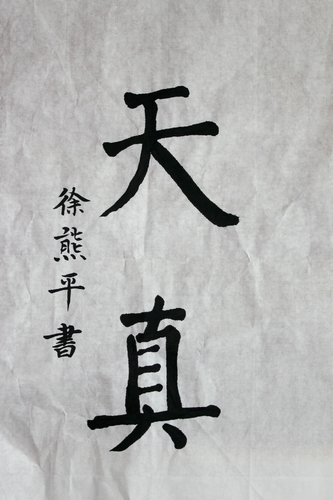 天真
徐熊平書